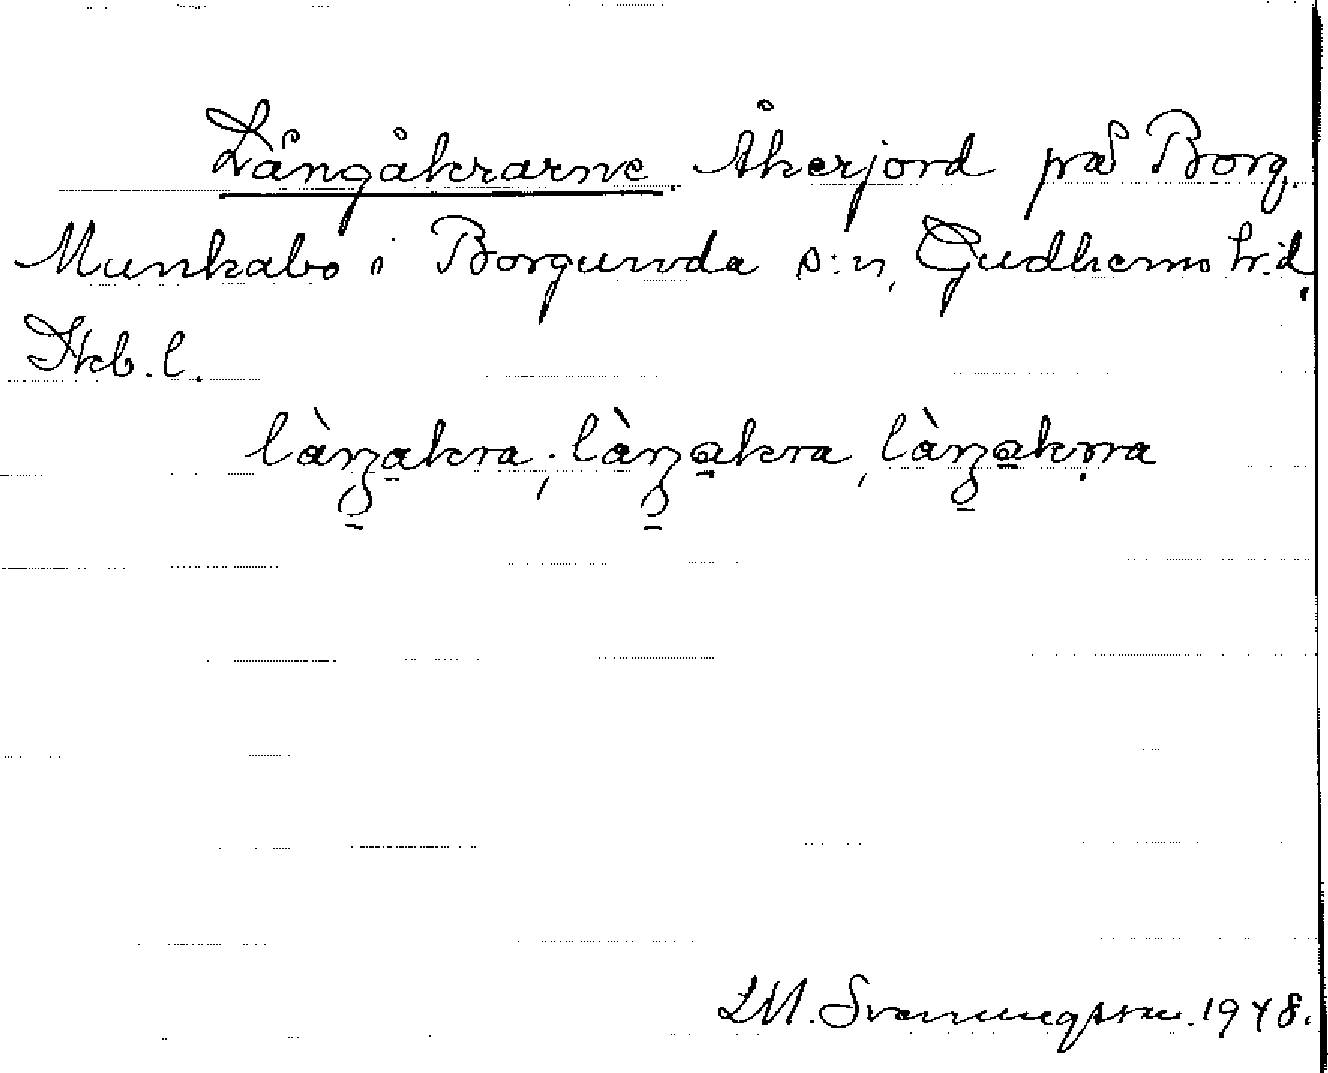 Långåkrarne. Åkerjord på Borg,
Munkabo i Borgunda s:n, Gudhems h:d,
Skb. l.
làŋakra; làŋakra, làŋakrra
LM. Svenungsson. 1948.